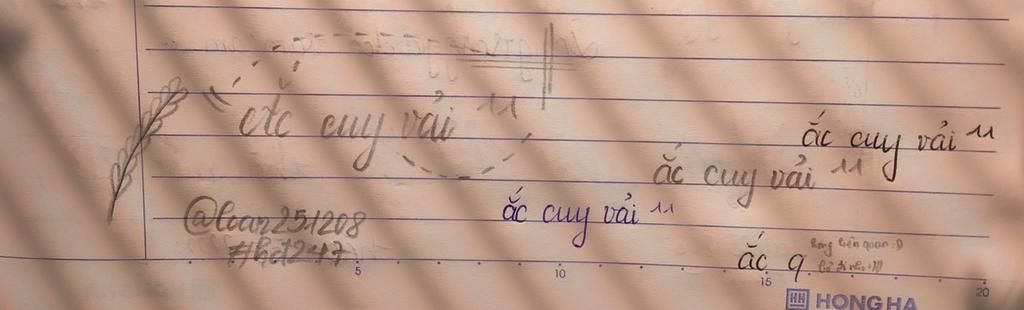 ắc cuy vải
ắc cuy vải
ắc cuy vải
@loan251208
ắc cuy vải
#hd247
ắc q.
không liên quan :D
5
10
15
20
HH HONG HA